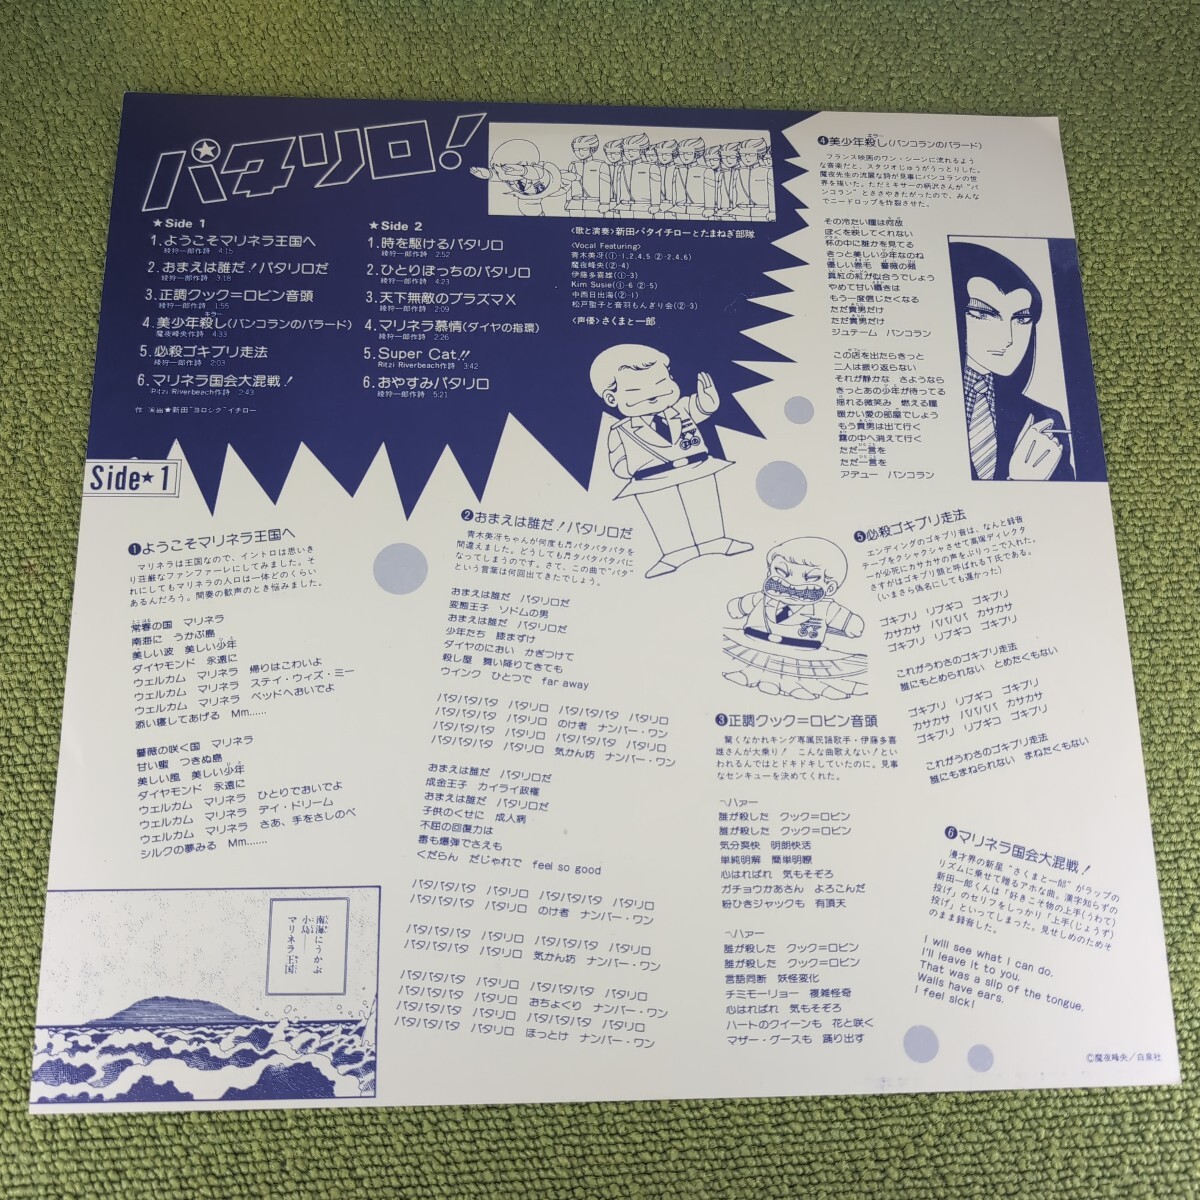 パタリロ!
★Side 1
1.ようこそマリネラ王国へ
綾狩一郎作詩 4:15
2.おまえは誰だ!パタリロだ
綾狩一郎作詩 3:18
3.正調クック=ロビン音頭
綾狩一郎作詩 1:55
4.美少年殺し(バンコランのバラード)
キラー
魔夜峰央作詩 4:33
5.必殺ゴキブリ走法
綾狩一郎作詩 2:03
6.マリネラ国会大混戦!
Ritzi Riverbeach作詩 2:43
★Side 2
1.時を駆けるパタリロ
綾狩一郎作詩 2:52
2.ひとりぼっちのパタリロ
綾狩一郎作詩 4:23
3.天下無敵のプラズマX
綾狩一郎作詩 2:09
4.マリネラ慕情(ダイヤの指環)
綾狩一郎作詩 2:26
5.Super Cat!!
Ritzi Riverbeach作詩 3:42
6.おやすみパタリロ
綾狩一郎作詩 5:21
〈歌と演奏〉新田パタイチローとたまねぎ部隊
〈Vocal Featuring〉
青木美冴(①-1,2,4,5 ②-2,4,6)
魔夜峰央(②-4)
伊藤多喜雄(①-3)
Kim Susie(①-6 ②-5)
中西日出海(②-1)
松戸聖子と音羽もんぎり会(②-3)
〈声優〉さくまと一郎
Side★1
❶ようこそマリネラ王国へ
マリネラは王国なので、イントロは思いき
り荘厳なファンファーレにしてみました。そ
れにしてもマリネラの人口は一体どのくらい
あるんだろう。間奏の歓声のとき悩みました。
常春の国 マリネラ
南海に うかぶ島
美しい波 美しい少年
ダイヤモンド 永遠に
ウェルカム マリネラ 帰りはこわいよ
ウェルカム マリネラ ステイ・ウィズ・ミー
ウェルカム マリネラ ベッドへおいでよ
添い寝してあげる Mm......
薔薇の咲く国 マリネラ
甘い蜜 つきぬ島
美しい風 美しい少年
ダイヤモンド 永遠に
ウェルカム マリネラ ひとりでおいでよ
ウェルカム マリネラ デイ・ドリーム
ウェルカム マリネラ さあ、手をさしのべ
シルクの夢みる Mm......
南海にうかぶ
小島――
マリネラ王国
❷おまえは誰だ!パタリロだ
青木美冴ちゃんが何度も♬パタパタパタを
間違えました。どうしても♬タパタパタパに
なってしまうのです。さて、この曲で“パタ”
という言葉は何回出てきたでしょう。
おまえは誰だ パタリロだ
変態王子 ソドムの男
おまえは誰だ パタリロだ
少年たち 膝まずけ
ダイヤのにおい かぎつけて
殺し屋 舞い降りてきても
ウインク ひとつで far away
パタパタパタ パタリロ パタパタパタ パタリロ
パタパタパタ パタリロ のけ者 ナンバー・ワン
パタパタパタ パタリロ パタパタパタ パタリロ
パタパタパタ パタリロ 気かん坊 ナンバー・ワン
おまえは誰だ パタリロだ
成金王子 カイライ政権
おまえは誰だ パタリロだ
子供のくせに 成人病
不屈の回復力は
毒も爆弾でさえも
くだらん だじゃれで feel so good
パタパタパタ パタリロ パタパタパタ パタリロ
パタパタパタ パタリロ のけ者 ナンバー・ワン
パタパタパタ パタリロ パタパタパタ パタリロ
パタパタパタ パタリロ 気かん坊 ナンバー・ワン
パタパタパタ パタリロ パタパタパタ パタリロ
パタパタパタ パタリロ おちょくり ナンバー・ワン
パタパタパタ パタリロ パタパタパタ パタリロ
パタパタパタ パタリロ ほっとけ ナンバー・ワン
❸正調クック=ロビン音頭
驚くなかれキング専属民謡歌手・伊藤多喜
雄さんが大乗り! こんな曲歌えない!とい
われるんではとドキドキしていたのに。見事
なセンキューを決めてくれた。
〽ハァー
誰が殺した クック=ロビン
誰が殺した クック=ロビン
気分爽快 明朗快活
単純明解 簡単明瞭
心はればれ 気もそぞろ
ガチョウかあさん よろこんだ
粉ひきジャックも 有頂天
〽ハァー
誰が殺した クック=ロビン
誰が殺した クック=ロビン
言語同断 妖怪変化
チミモーリョー 複雑怪奇
心はればれ 気もそぞろ
ハートのクイーンも 花と咲く
マザー・グースも 踊り出す
❹美少年殺し(バンコランのバラード)
キラー
フランス映画のワン・シーンに流れるよう
な音楽だと、スタジオじゅうがうっとりした。
魔夜先生の流麗な詩が見事にバンコランの世
界を描いた。ただミキサーの柄沢さんが“バ
ンコラン”とささやきたがったので、みんな
でニードロップを炸裂させた。
その冷たい瞳は何故
ぼくを映してくれない
杯の中に誰かを見てる
きっと美しい少年なのね
優しい巻毛 薔薇の頬
真紅の紅が似合うでしょう
やめて甘い囁きは
もう一度信じたくなる
ただ貴男だけ
ただ貴男だけ
ジュテーム バンコラン
この店を出たらきっと
二人は振り返らない
それが静かな さようなら
きっとあの少年が待ってる
揺れる微笑み 燃える瞳
暖かい愛の部屋でしょう
もう貴男は出て行く
霧の中へ消えて行く
ただ一言を
ただ一言を
アデュー バンコラン
❺必殺ゴキブリ走法
エンディングのゴキブリ音は、なんと録音
テープをクシャクシャさせて高塚ディレクタ
ーが必死にカサカサの声をぶりっこで入れた。
さすがはゴキブリ顔と呼ばれるT氏である。
(いまさら係名にしても遅かった)
ゴキブリ リブギコ ゴキブリ
カサカサ パパパパ カサカサ
ゴキブリ リブギコ ゴキブリ
これがうわさのゴキブリ走法
誰にもとめられない とめたくもない
ゴキブリ リブギコ ゴキブリ
カサカサ パパパパ カサカサ
ゴキブリ リブギコ ゴキブリ
これがうわさのゴキブリ走法
誰にもまねられない まねたくもない
❻マリネラ国会大混戦!
漫才界の新星“さくまと一郎”がラップの
リズムに乗せて贈るアホな曲。漢字知らずの
新田一郎くんは「好きこそ物の上手(うわて)
投げ」のセリフをしっかり「上手(じょうず)
投げ」といってしまった。見せしめのためそ
のまま録音した。
I will see what I can do.
I'll leave it to you.
That was a slip of the tongue.
Walls have ears.
I feel sick!
©魔夜峰央/白泉社